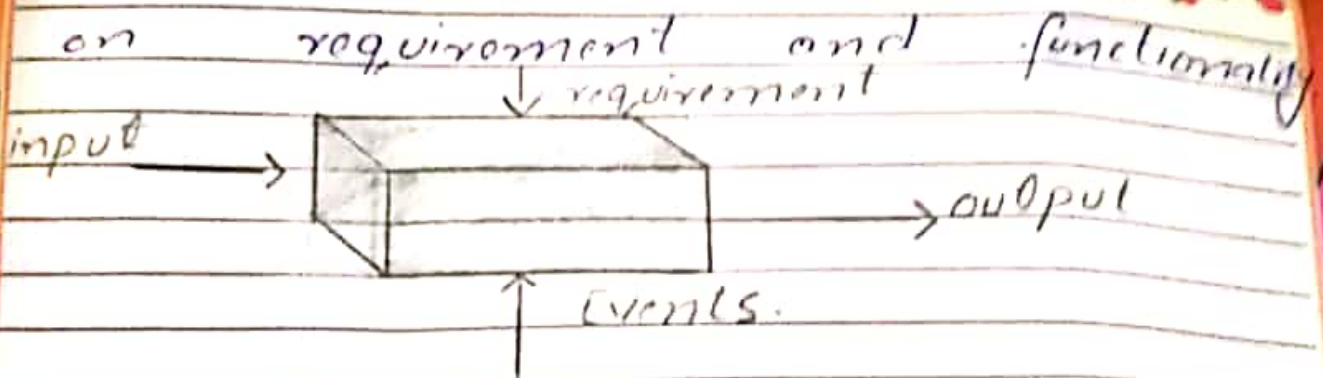 on requirement and functionality
requirement
input
output
Events.